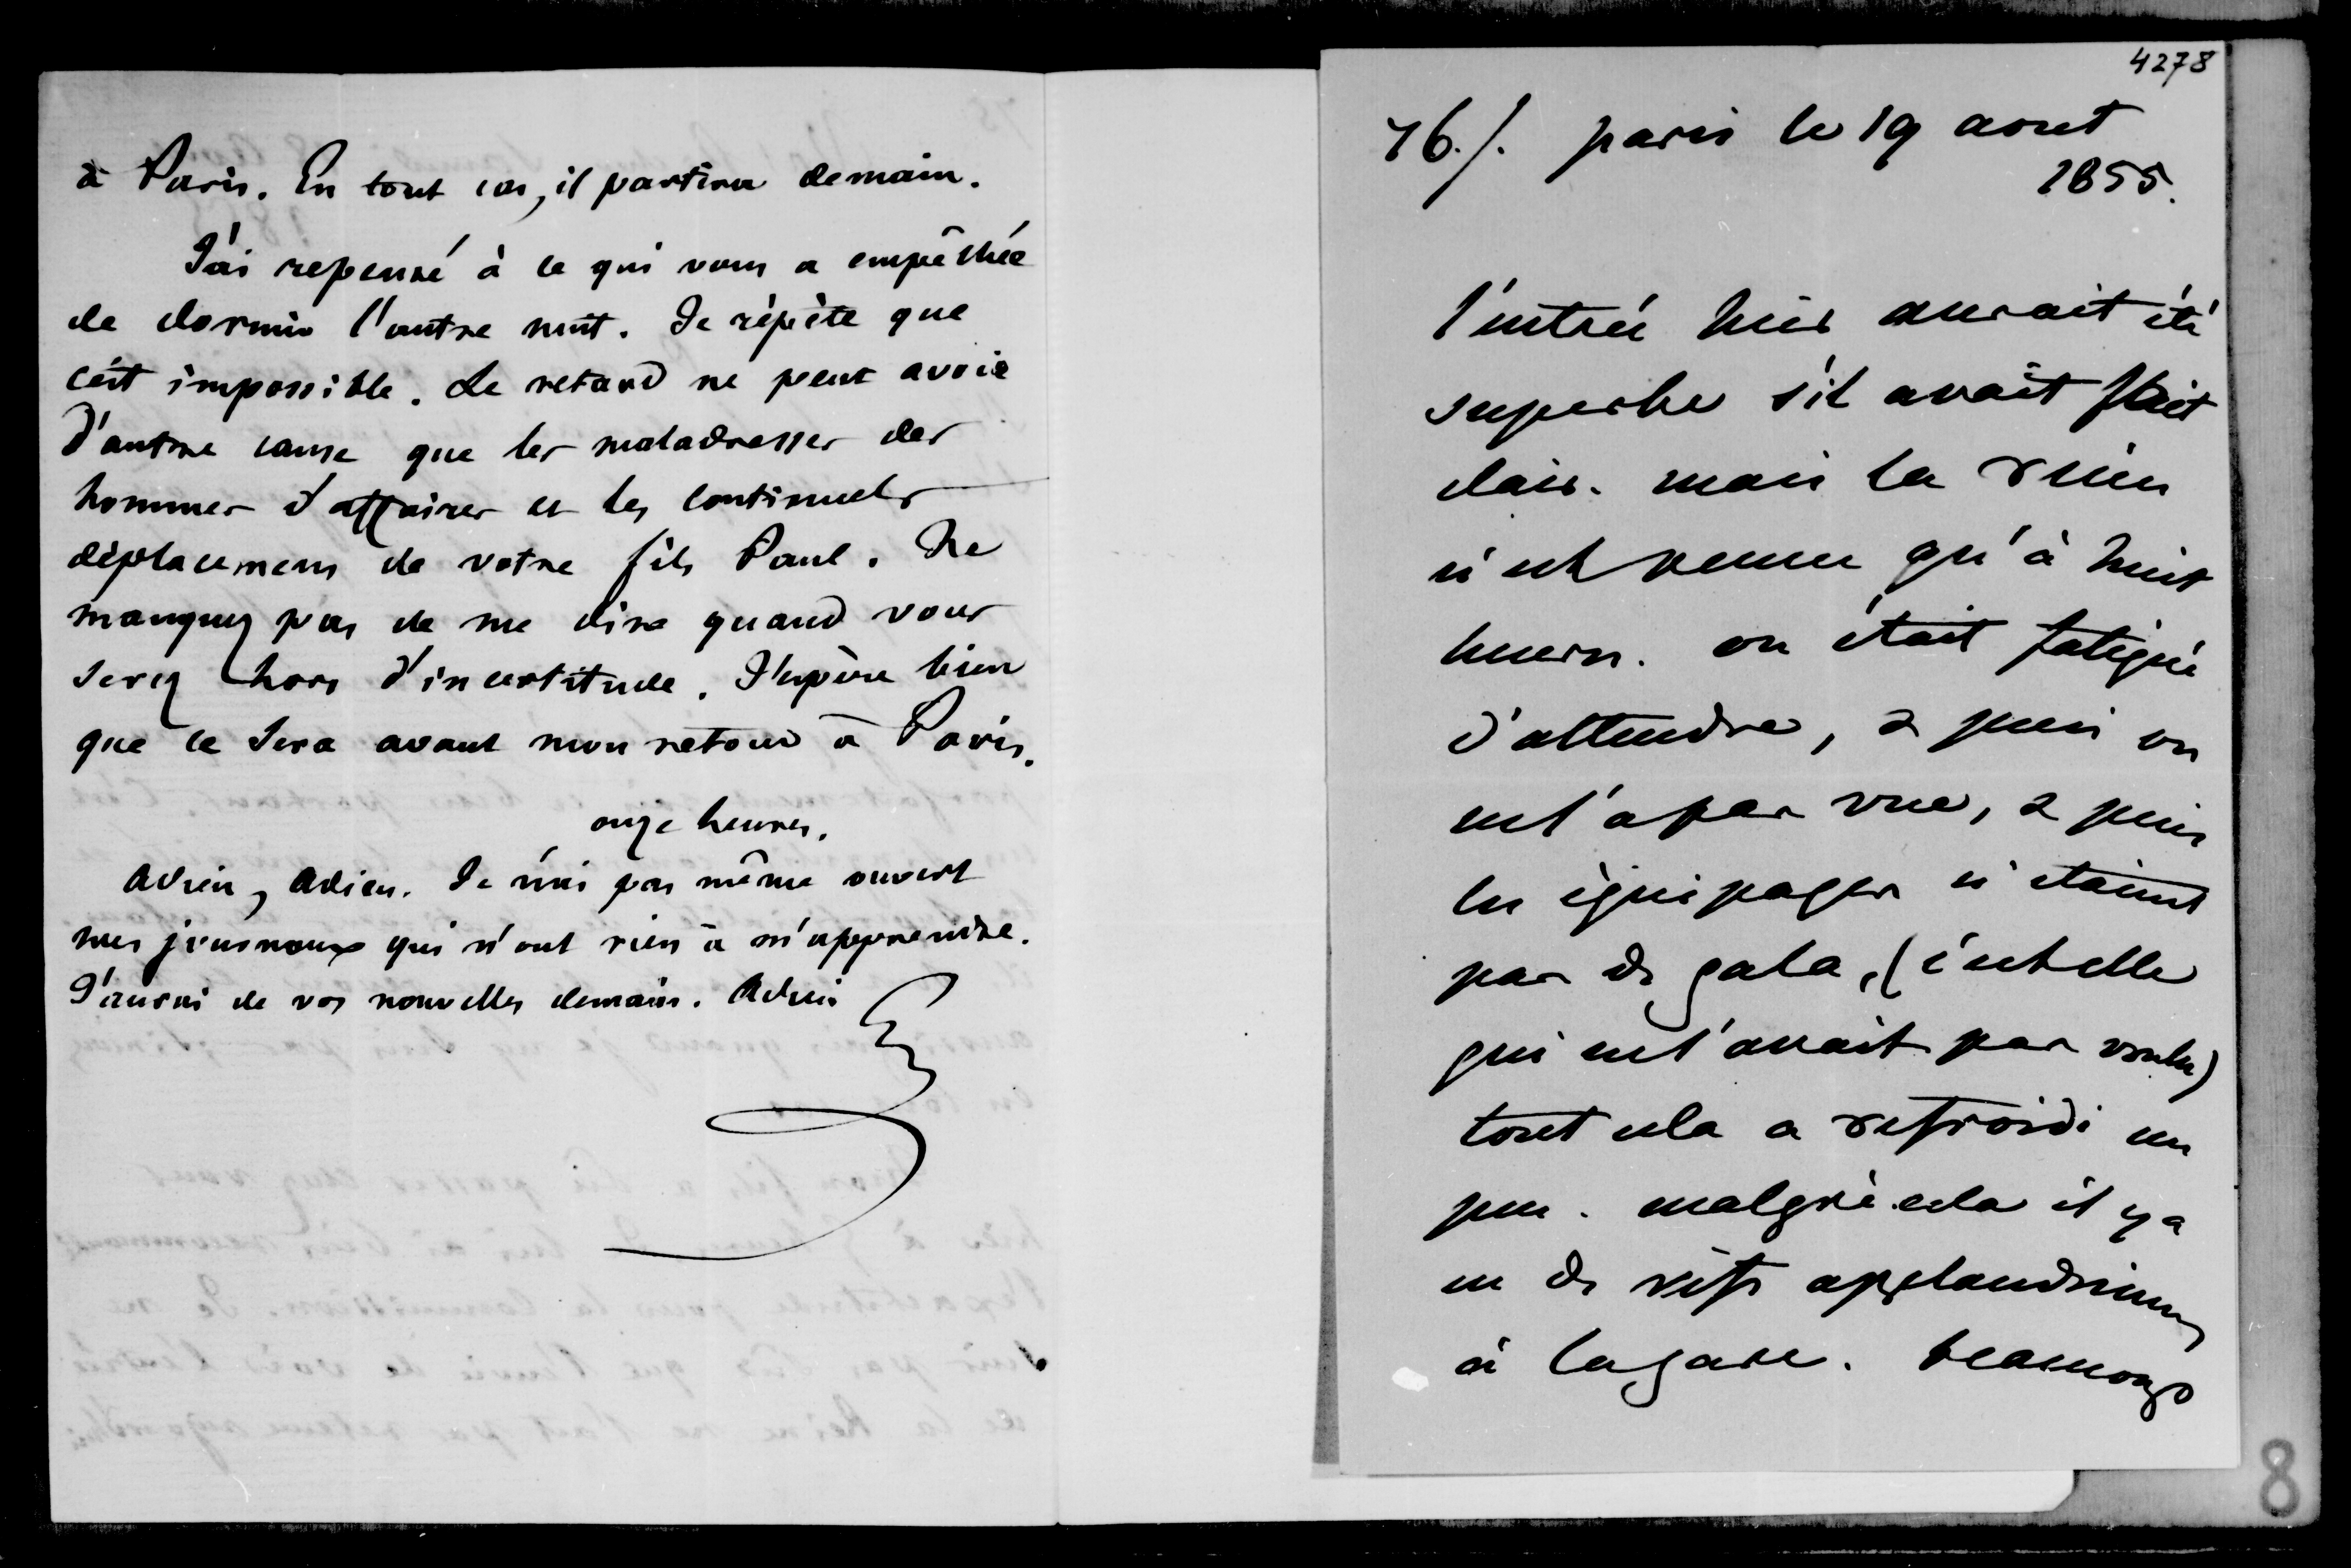 à Paris. En tout cas, il partira demain.
J'ai repensé à ce qui vous a empêchée
de dormir l'autre nuit. Je répète que
c'est impossible. Le retard ne peut avoir
d'autre cause que les maladresses des
hommes d'affaires et les continuels
déplacemens de votre fils Paul. Ne
manquez pas de me dire quand vous
serez hors d'incertitude. J'espère bien
que ce sera avant mon retour à Paris.
onze heures.
Adieu, Adieu. Je n'ai pas même ouvert
mes journaux qui n'ont rien à m'apprendre.
J'aurai de vos nouvelles demain. Adieu
4278
76./. paris le 19 aout
1855.
l'entrée hier aurait été
superbe s'il avait fait
clair. mais la reine
n'est venue qu'à huit
heures. on était fatigué
d'attendre, & puis on
ne l'a pas vue, & puis
les équipages n'étaient
pas de gala, (c'est elle
qui ne l'avait pas voulu)
tout cela a refroidi un
peu. malgré cela il y a
eu de vifs applaudissemens
à la gare. beaucoup
8